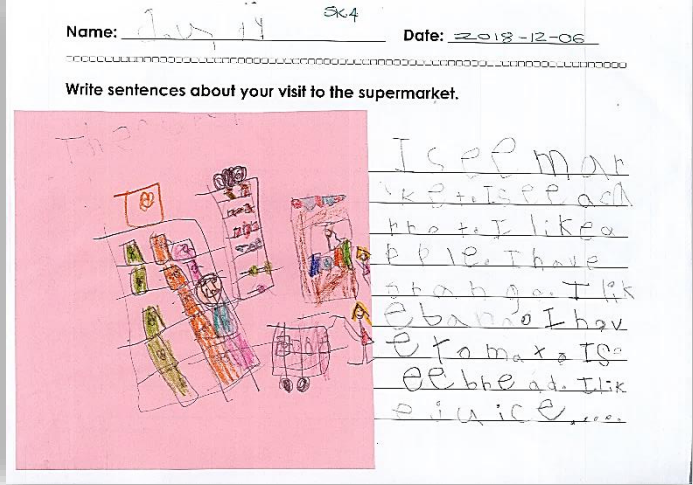 SK4
Name:
Date: 2018-12-06
Write sentences about your visit to the supermarket.
I see mar
ket. I see a ca
rrot. I like a
pple. I have
I lik
e bana. I hav
e tomato. I s
ee bread. I lik
e juice....